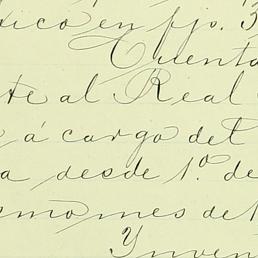 ico en fjs. 3
Cuenta
te al Real
á cargo del
a desde 1º. de
smo mes del
Ynven